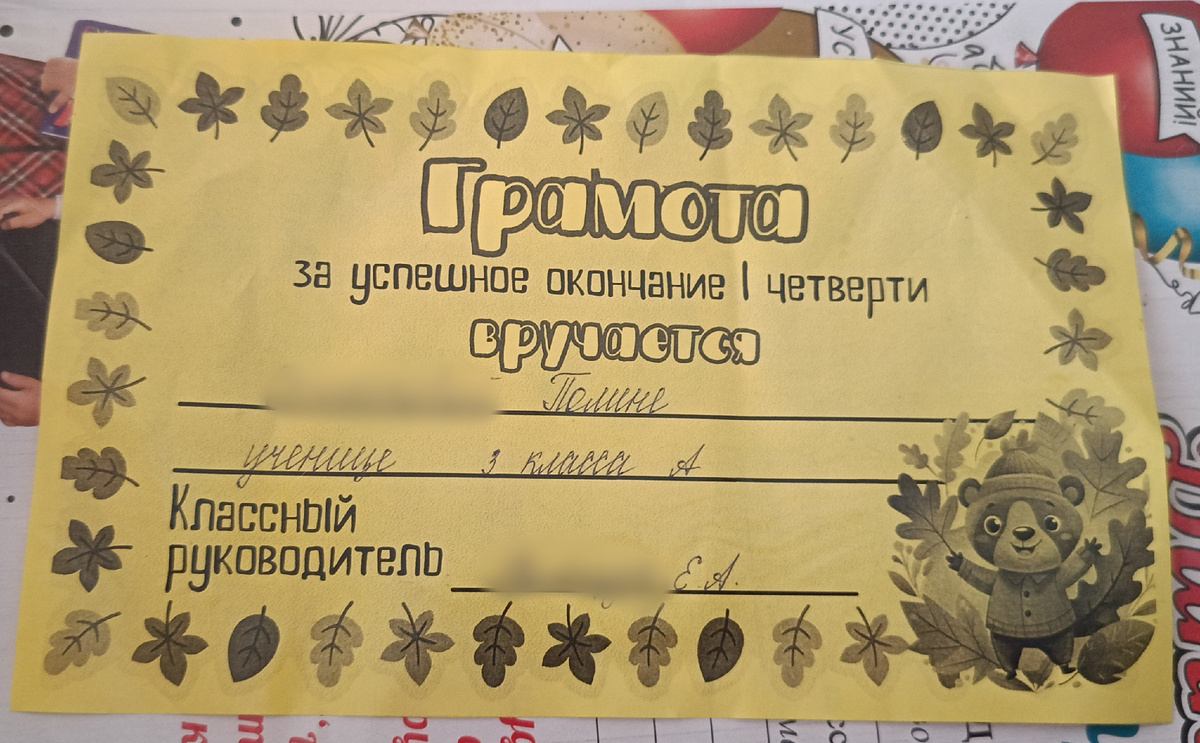 Грамота
за успешное окончание I четверти
вручается
Полине
ученице 3 класса А
Классный
руководитель Е.А.
ЗНАНИЙ!
УС